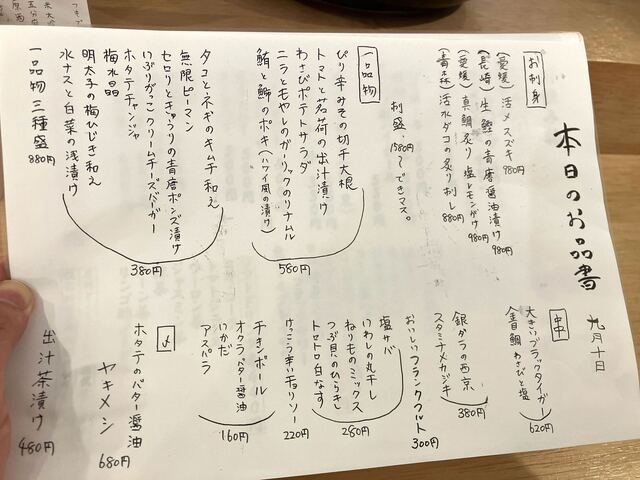 本日のお品書
九月十日
お刺身
(愛媛) 活〆スズキ 980円
(長崎) 生鰹の青唐醤油漬け 980円
(愛媛) 真鯛炙り 塩レモンがけ 980円
(青森) 活水ダコの炙り刺し 880円
刺盛 1580円〜できマス。
一品物
ぴり辛みその切干大根
トマトと茗荷の出汁漬け
わさびポテトサラダ
ニラともやしのガーリックのリナムル
鮪と鰤のポキ(ハワイ風の漬け)
580円
タコとネギのキムチ和え
無限ピーマン
セロリときゅうりの青唐ポンズ漬け
いぶりがっこクリームチーズバーガー
ホタテチャンジャ
梅水晶
明太子の梅ひじき和え
水ナスと白菜の浅漬け
380円
一品物 三種盛 880円
串
大きいブラックタイガー
金目鯛 わさびと塩
620円
銀ダラの西京
スタミナメカジキ
380円
おいしいフランクフルト 300円
塩サバ
いわしの丸干し
ねりものミックス
つぶ貝のひらきし
トロトロ白なす
280円
けっこう辛いチョリソー 220円
チキンボール
オクラバター醤油
いかだ
アスパラ
160円
〆
ホタテのバター醤油
ヤキメシ 680円
出汁茶漬け 480円